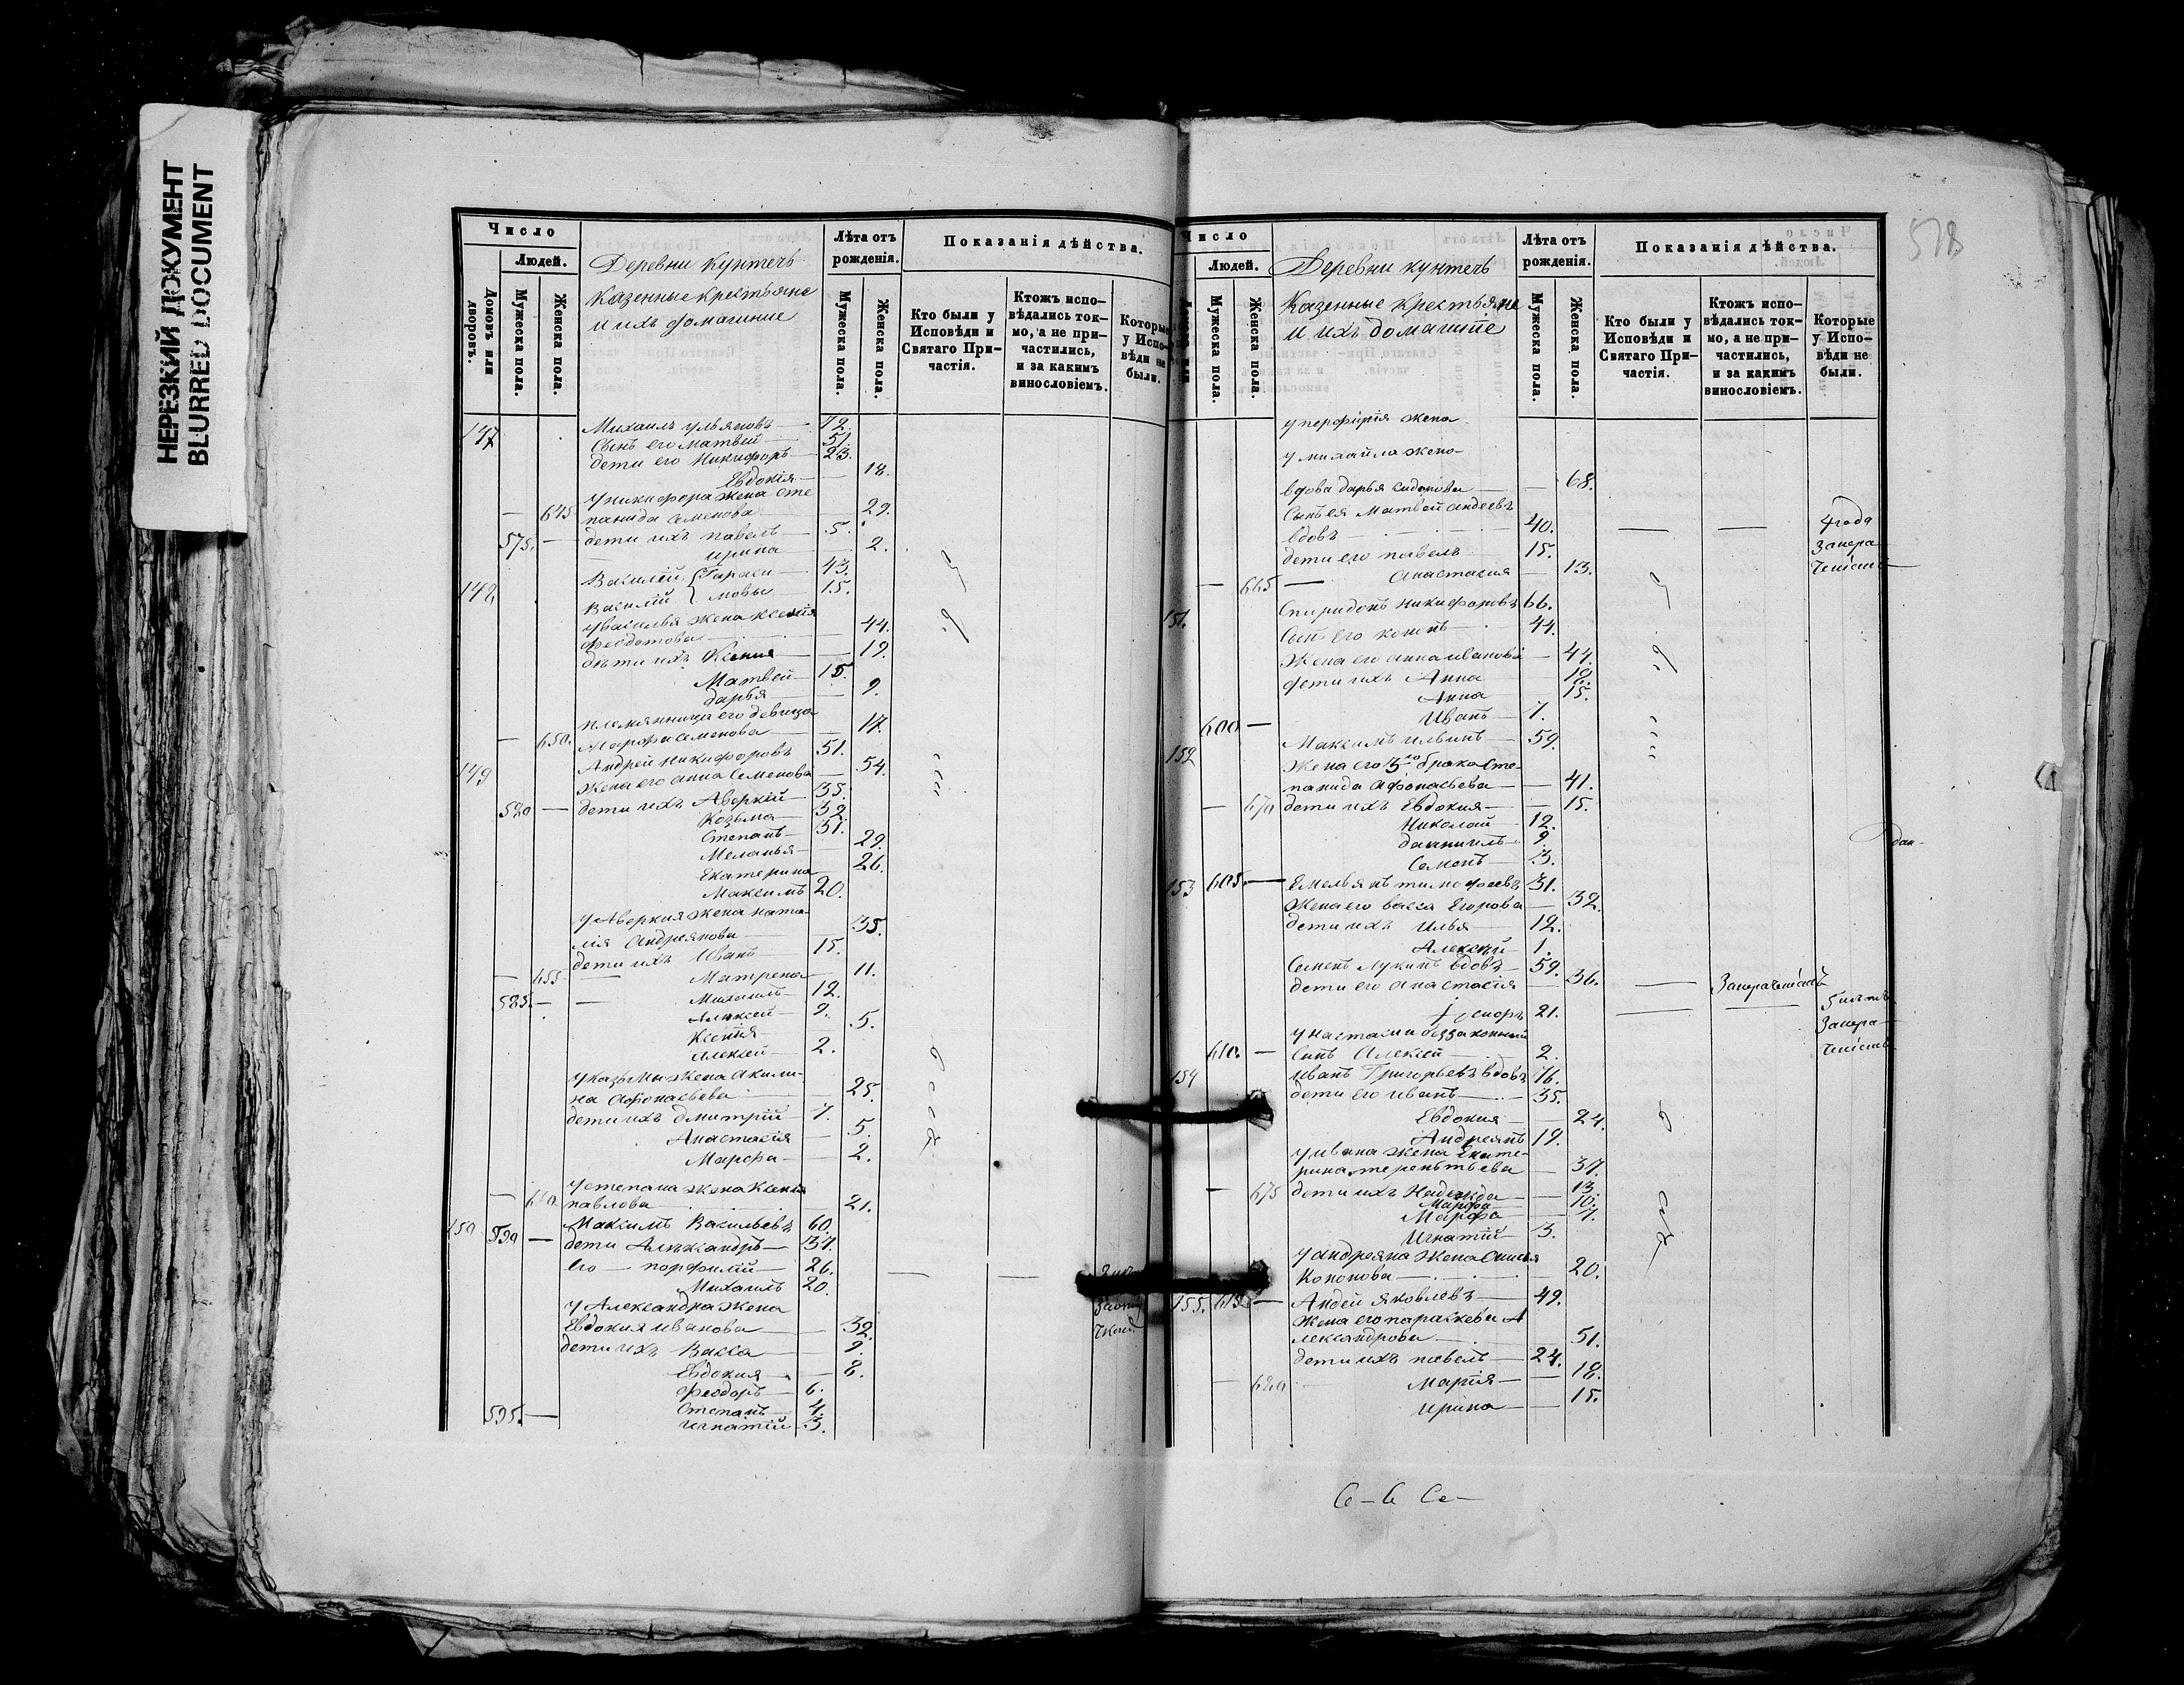 НЕРЕЗКИЙ ДОКУМЕНТ
BLURRED DOCUMENT
Число
Людей.
Домовъ или дворовъ.
Мужеска пола.
Женска пола.
Деревни Кунтечь
Казенные крестьяне
и ихъ домашние
Лѣта отъ рожденія.
Мужеска пола.
Женска пола.
Показанія дѣйства.
Кто были у Исповѣди и Святаго Причастія.
Ктожъ исповѣдались токмо, а не причастились, и за какимъ винословіемъ.
Которые у Исповѣди не были.
147 Михаилъ Ульяновъ — 72.
Сынъ его Матвей — 51.
дети его Никифоръ — 23.
Евдокія — 18.
у Никифора жена Сте
— 645 панида Семенова — 29.
575. — дети ихъ Павелъ — 5.
Ирина — 2.
148 Василій { Тараси — 43.
Василій { мовы 15.
у Василья жена Ксенія
Феодотова — 44.
дѣти ихъ Ксения — 19.
Матвей — 15.
Дарья — 9.
племянница его девица
— 650. Марфа Семенова — 17.
149 Андрей Никифоровъ 51.
жена его Анна Семенова — 54.
580 — дети ихъ Аверкій — 35.
Козьма — 32.
Степанъ — 31.
Меланья — 29.
Екатерина 26.
Максимъ 20.
у Аверкия жена Ната-
лія Андреянова — 35.
дети ихъ Иванъ — 15.
— 655 — Матрена — 11.
585. — — Михаилъ — 12.
Алексей — 9.
Ксенія — 5.
Алексей — 2.
у Казьмы жена Акили-
на Афонасьева — 25.
дети ихъ Дмитрій — 7.
Анастасія — 5.
Марфа — 2.
у Степана жена Ксенія
— 660 Павлова 21.
150 590 — Максимъ Васильевъ 60.
дети Александръ — 37.
его — Порфилій — 26.
Михаилъ 20.
у Александра жена
Евдокия Иванова — 32.
дети ихъ Васса — 9.
Евдокия — 8.
Феодоръ — 6.
Степанъ — 4.
595. — Игнатій — 3.
578
Число
Людей.
Мужеска пола.
Женска пола.
Деревни Кунтечь
Казенные крестьяне
и ихъ домашніе
Лѣта отъ рожденія.
Мужеска пола.
Женска пола.
Показанія дѣйства.
Кто были у Исповѣди и Святаго Причастія.
Ктожъ исповѣдались токмо, а не причастились, и за какимъ винословіемъ.
Которые у Исповѣди не были.
у Перфирія жена
у Михайла жена
вдова Дарья Сидорова — 68.
Сынъ ея Матвей Андеевъ
вдовъ 40. — — 4 года
дети его Павелъ 15. Занера
— 665 — Анастасия — 13.
151. Спиридонъ Никифоровъ 66.
Сынъ его Кононъ 44.
жена его Анна Иванова — 44.
дети ихъ Анна 18.
Анна 15.
600 — Иванъ — 7.
152 Максимъ Ильинъ — 59.
жена его 3го брака Сте-
панида Афонасьева — 41.
— 670 дети ихъ Евдокия — 15.
Николай 12.
Даниилъ 9.
Семенъ 3.
153 605. — Емельянъ Тимофеевъ 31.
жена его Васса Егорова — 32.
дети ихъ Илья — 12.
Алексѣй — 1.
Семенъ Лукинъ вдовъ — 59.
дети его Анастасія — 36.
21.
у Настасии беззаконный
610. — Сынъ Алексей 2.
154 Иванъ Григорьевъ вдовъ 76.
дети его Иванъ — 35.
Евдокия — 24.
Андреянъ 19.
у Ивана жена Екате-
рина Терентьева — 37.
— 675 дети ихъ Надежда — 13.
Марфа 10.
Марфа 7.
Игнатій — 3.
у Андреяна жена
Кононова — 20.
155. 615 — Андей Яковлевъ — 49.
жена его Параскева А
лександрова 51.
дети ихъ Павелъ — 24.
— 680 Марія — 18.
Ирина — 15.